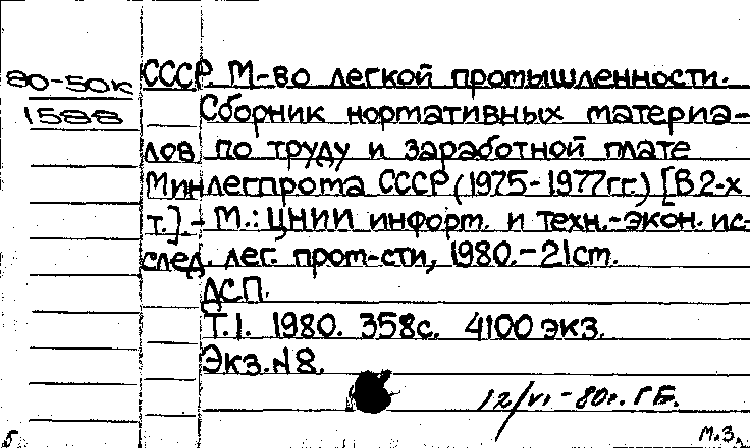 80-50к
1588
СССР. М-во легкой промышленности.
Сборник нормативных материа-
лов по труду и заработной плате
Минлегпрома СССР (1975-1977гг.) [В 2-х
т.]. - М.: ЦНИИ информ. и техн.-экон. ис-
след. лег. пром-сти, 1980.-21см.
ДСП.
Т.1. 1980. 358с. 4100 экз.
Экз. N 8.
12/VI-80г. ГБ.
м.з.